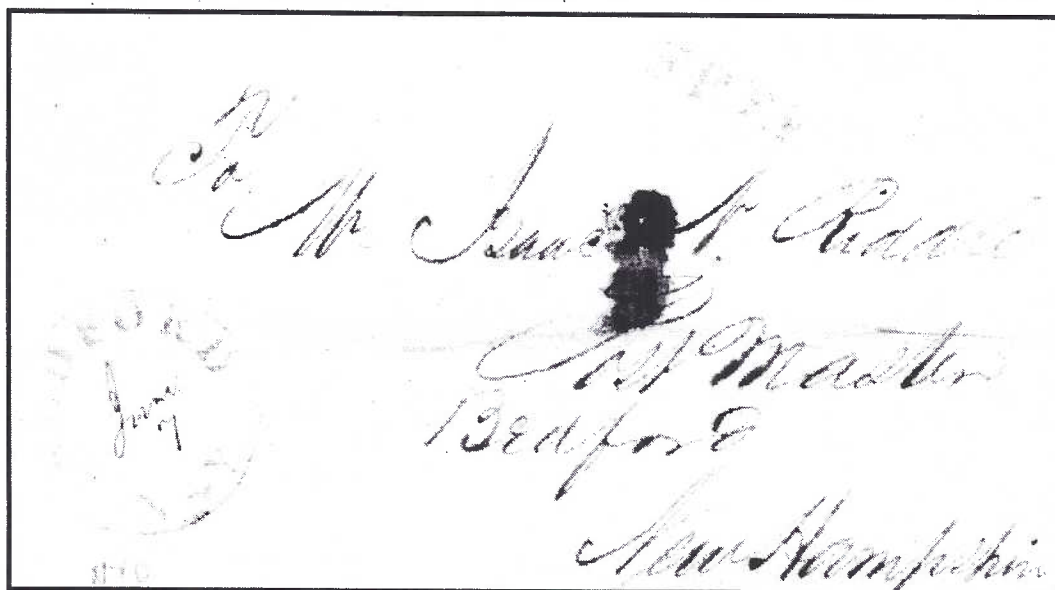 To
Mr Isaac N. Riddle
Post Master
Bedford
New Hampshire
June
7